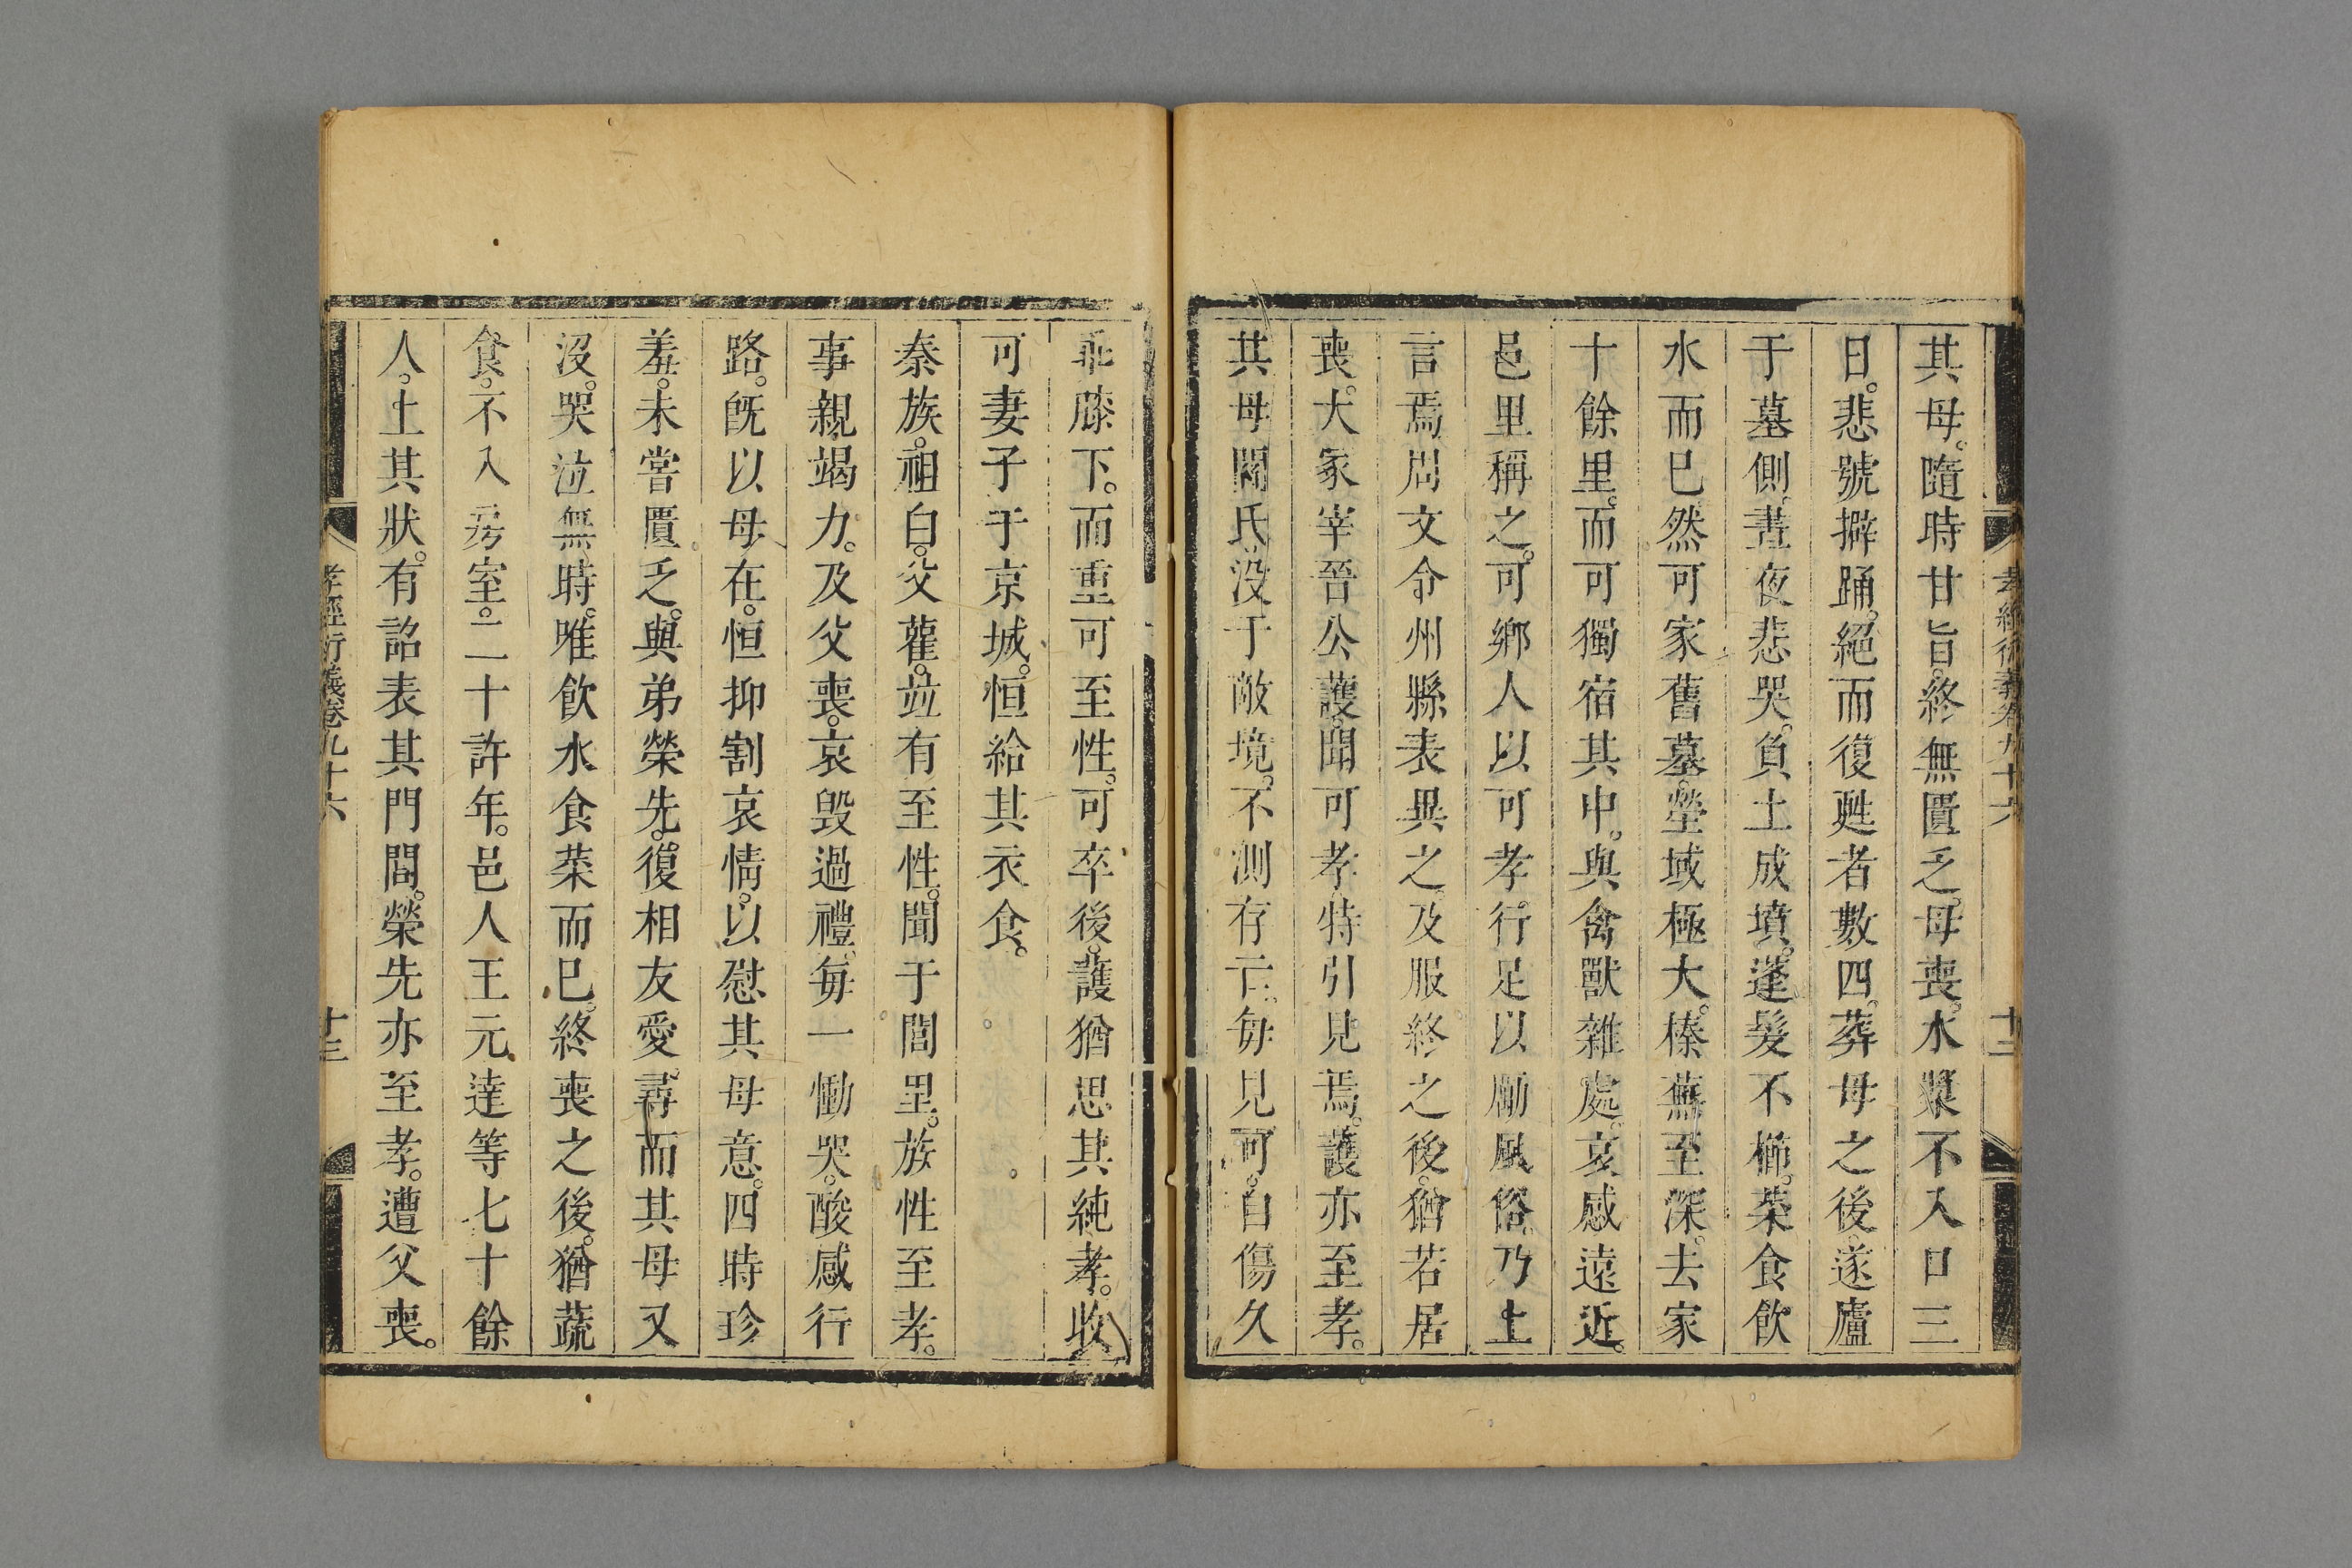 孝經衍義卷九十六
十二
其母。隨時甘旨。終無匱乏。母喪。水漿不入口三
日。悲號擗踊。絕而復甦者數四。葬母之後。遂廬
于墓側。晝夜悲哭。負土成墳。蓬髮不櫛。菜食飲
水而已然可家舊墓。塋域極大。榛蕪至深。去家
十餘里。而可獨宿其中。與禽獸雜處。哀感遠近。
邑里稱之。可鄉人以可孝行足以勵風俗。乃上
言焉周文令州縣表異之。及服終之後。猶若居
喪。大冢宰晉公護。聞可孝特引見焉。護亦至孝。
其母閻氏沒于敵境。不測存亡。每見可。自傷久
乖膝下。而重可至性。可卒後。護猶思其純孝。收
可妻子于京城。恒給其衣食。
秦族。祖白。父雚。竝有至性。聞于閭里。族性至孝。
事親竭力。及父喪。哀毀過禮。每一慟哭。酸感行
路。既以母在。恒抑割哀情。以慰其母意。四時珍
羞。未嘗匱乏。與弟榮先。復相友愛。尋而其母又
沒。哭泣無時。唯飲水食菜而已。終喪之後。猶蔬
食。不入房室。二十許年。邑人王元達等七十餘
人。上其狀。有詔表其門閭。榮先亦至孝。遭父喪。
孝經衍義卷九十六
十三